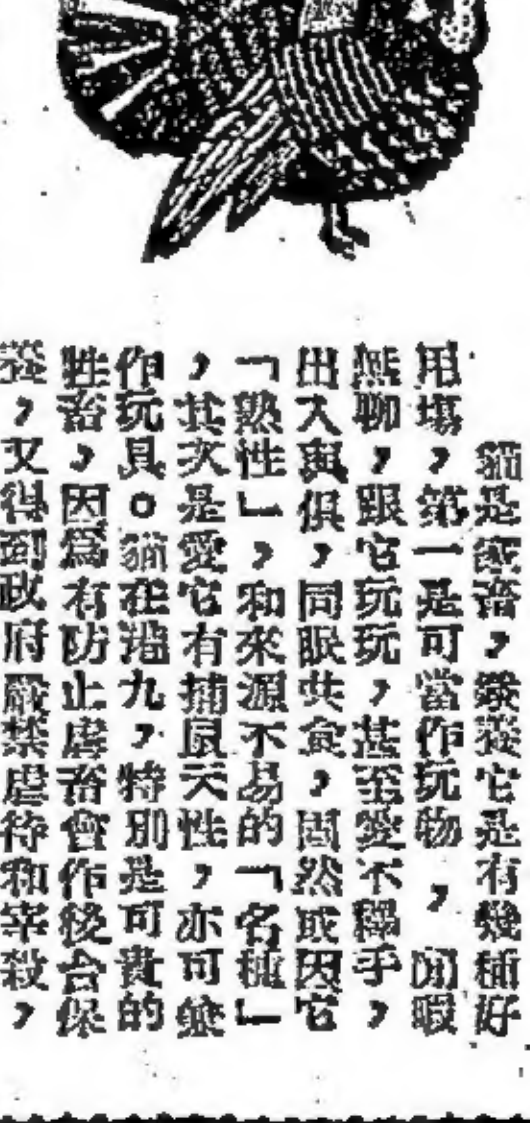 貓是家畜，豢養它是有幾種好
用場，第一是可當作玩物，閒暇
無聊，跟它玩玩，甚至愛不釋手，
出入與俱，同眠共食，固然或因它
「熟性」，和來源不易的「名種」
，其次是愛它有捕鼠天性，亦可兼
作玩具。貓在港九，特別是可貴的
牲畜，因爲有防止虐畜會作後台保
，又得到政府嚴禁虐待和宰殺，